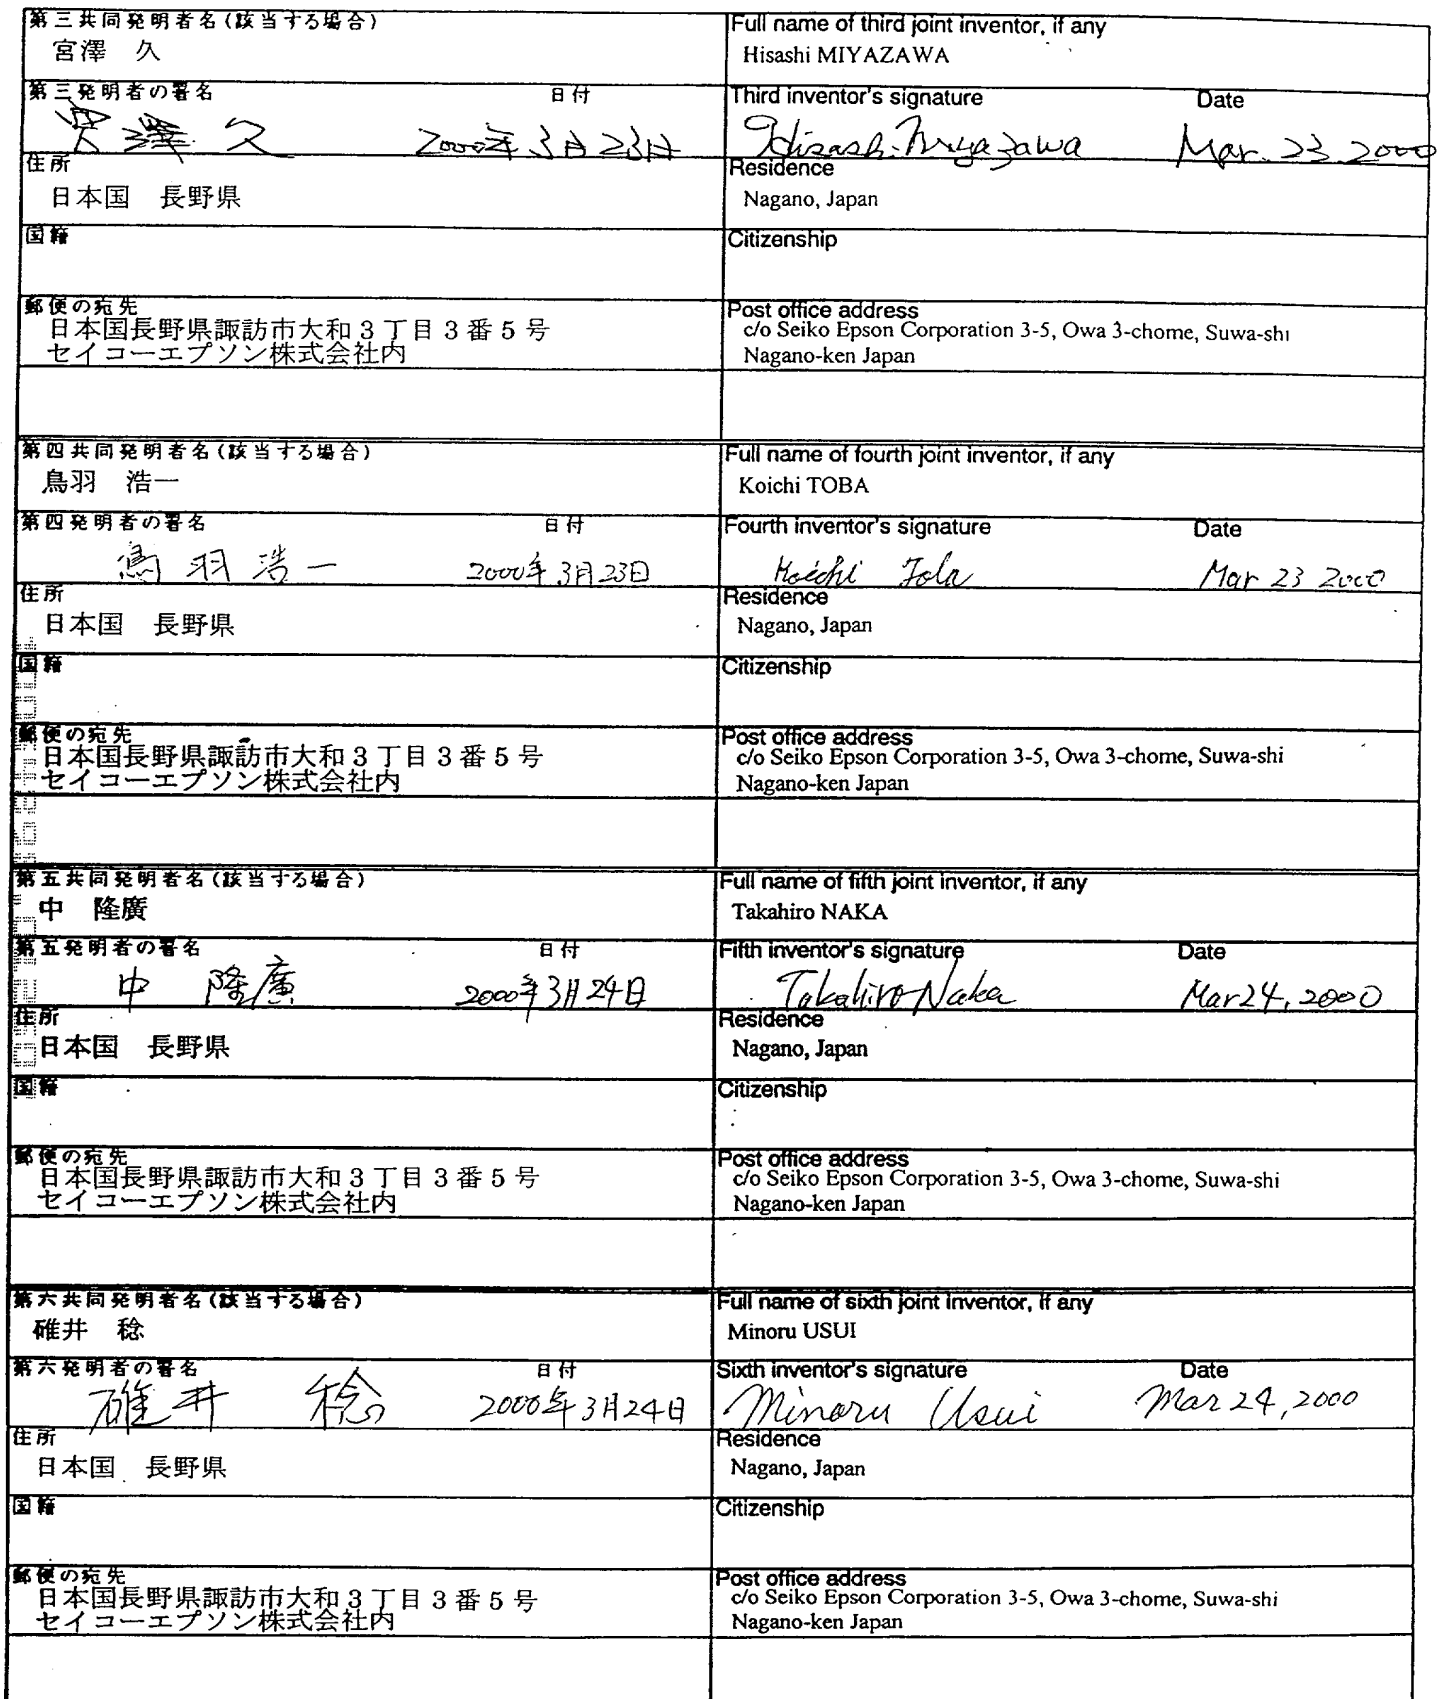 第三共同発明者名(該当する場合)
宮澤 久
Full name of third joint inventor, if any
Hisashi MIYAZAWA
第三発明者の署名 日付
宮澤 久 2000年3月23日
Third inventor's signature Date
Hisashi Miyazawa Mar. 23 2000
住所
日本国 長野県
Residence
Nagano, Japan
国籍
Citizenship
郵便の宛先
日本国長野県諏訪市大和3丁目3番5号
セイコーエプソン株式会社内
Post office address
c/o Seiko Epson Corporation 3-5, Owa 3-chome, Suwa-shi
Nagano-ken Japan
第四共同発明者名(該当する場合)
鳥羽 浩一
Full name of fourth joint inventor, if any
Koichi TOBA
第四発明者の署名 日付
鳥羽浩一 2000年3月23日
Fourth inventor's signature Date
Koichi Toba Mar 23 2000
住所
日本国 長野県
Residence
Nagano, Japan
国籍
Citizenship
郵便の宛先
日本国長野県諏訪市大和3丁目3番5号
セイコーエプソン株式会社内
Post office address
c/o Seiko Epson Corporation 3-5, Owa 3-chome, Suwa-shi
Nagano-ken Japan
第五共同発明者名(該当する場合)
中 隆廣
Full name of fifth joint inventor, if any
Takahiro NAKA
第五発明者の署名 日付
中 隆廣 2000年3月24日
Fifth inventor's signature Date
Takahiro Naka Mar 24, 2000
住所
日本国 長野県
Residence
Nagano, Japan
国籍
Citizenship
郵便の宛先
日本国長野県諏訪市大和3丁目3番5号
セイコーエプソン株式会社内
Post office address
c/o Seiko Epson Corporation 3-5, Owa 3-chome, Suwa-shi
Nagano-ken Japan
第六共同発明者名(該当する場合)
碓井 稔
Full name of sixth joint inventor, if any
Minoru USUI
第六発明者の署名 日付
碓井 稔 2000年3月24日
Sixth inventor's signature Date
Minoru Usui Mar 24, 2000
住所
日本国 長野県
Residence
Nagano, Japan
国籍
Citizenship
郵便の宛先
日本国長野県諏訪市大和3丁目3番5号
セイコーエプソン株式会社内
Post office address
c/o Seiko Epson Corporation 3-5, Owa 3-chome, Suwa-shi
Nagano-ken Japan